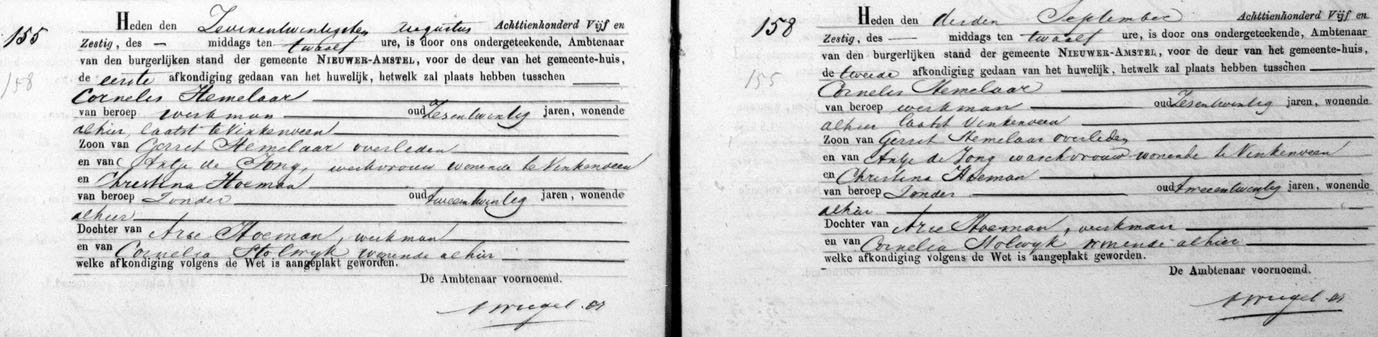 155
158
Heden den Zevenentwintigsten Augustus Achttienhonderd Vijf en
Zestig, des — middags ten twaalf ure, is door ons ondergeteekende, Ambtenaar
van den burgerlijken stand der gemeente Nieuwer-Amstel, voor de deur van het gemeente-huis,
de eerste afkondiging gedaan van het huwelijk, hetwelk zal plaats hebben tusschen
Cornelis Hemelaar
van beroep werkman oud Zesentwintig jaren, wonende
alhier, laatst te Vinkenveen
Zoon van Gerret Hemelaar overleden
en van Antje de Jong, werkvrouw wonende te Vinkenveen
en Christina Hoeman
van beroep Zonder oud tweeentwintig jaren, wonende
alhier
Dochter van Arie Hoeman, werkman
en van Cornelia Stolwyk wonende alhier
welke afkondiging volgens de Wet is aangeplakt geworden.
De Ambtenaar voornoemd.
158
155
Heden den derden September Achttienhonderd Vijf en
Zestig, des — middags ten twaalf ure, is door ons ondergeteekende, Ambtenaar
van den burgerlijken stand der gemeente Nieuwer-Amstel, voor de deur van het gemeente-huis,
de tweede afkondiging gedaan van het huwelijk, hetwelk zal plaats hebben tusschen
Cornelis Hemelaar
van beroep werkman oud Zesentwintig jaren, wonende
alhier laatst Vinkenveen
Zoon van Gerret Hemelaar overleden
en van Antje de Jong warkvrouw wonende te Vinkenveen
en Christina Hoeman
van beroep Zonder oud tweeentwintig jaren, wonende
alhier
Dochter van Arie Hoeman, werkman
en van Cornelia Stolwyk wonende alhier
welke afkondiging volgens de Wet is aangeplakt geworden.
De Ambtenaar voornoemd.